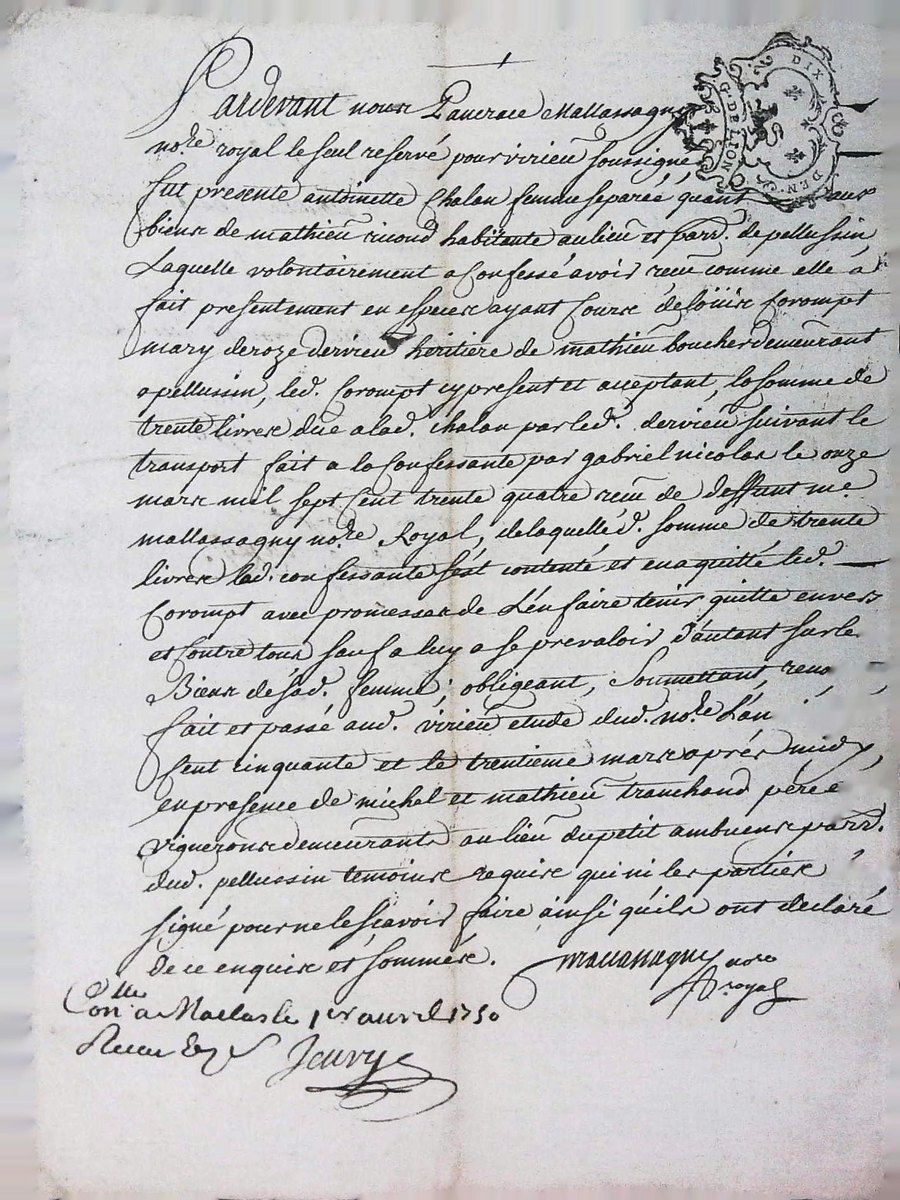 Pardevant nous Pancrace Mallassagny
no.re royal le seul reservé pour virieu soussigné
fut presente antoinette Chalan femme separéé quant aux
biens de mathieu habitante au lieu et parr. de pellussin
Laquelle volontairement a Confessé avoir reçu comme elle a
fait presentement en especes ayant Cours de loüis Corompt
mary de roze dervieu heritiere de mathieu boucher demeurant
a pellussin, led. Corompt cy present et acceptant, la somme de
trente livres düe a lad. Chalan par led. dervieu suivant le
transport fait a la Confessante par gabriel nicolas le onze
mars mil sept Cent trente quatre reçu de deffunt me.
mallassagny no.re Royal, de laquelle d. somme de trente
livres lad. confessante s'est contenté et en a quitté led.
Corompt avec promesses de L'en faire tenir quitte envers
et Contre tous sauf a luy a se prevaloir d'autant sur les
Biens de sad. femme; obligeant, Soumettant, reno
fait et passé aud. virieu etude dud. no.re L'an
Cent cinquante et le trentieme mars aprés midy,
en presence de michel et mathieu tranchand pere e
vignerons demeurants au lieu du petit ambuens parr.
dud. pellussin temoins requis qui ni les parties
signé pour ne le sçavoir faire ainsi qu'ils ont declaré
de ce enquis et sommés.
Mallassagny no.re
royal
Con.lle a Maclas le 1er avril 1750
Jeury
G. DE LION
DIX DEN.